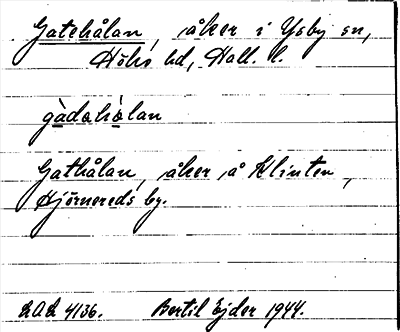 Gatehålan, åker i Ysby sn,
Höks hd, Hall. l.
gàdæhòlan
Gathålan, åker å Klinten,
Hjörnereds by.
LAL 4136. Bertil Ejder 1944.